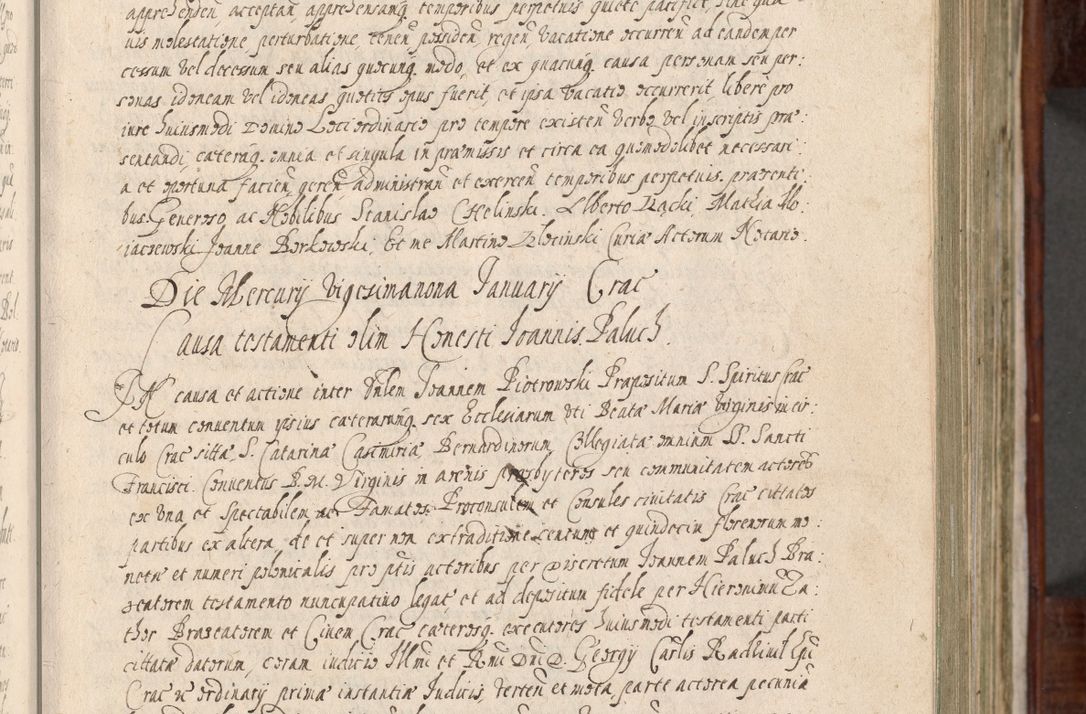 apprehenden acceptan apprehensamq temporibus perpetuis quiete pacifice, sine qua
uis molestatione perturbatione, tenen possiden, regen, vacatione occurren ad eandem per
cessum vel decessum seu alias quocunq modo, et ex quacunq causa personam seu per:
sonas idoneam vel idoneas quoties opus fuerit, et ipsa vacatio occurrerit, libere pro
iure huiusmodi Domino Loci ordinario pro tempore existen verbo vel inscriptis præ:
sentandi, cæteraq omnia et singula in præmissis et circa ea quomodolibet necessari:
a et oportuna facien, geren, administran et exercen temporibus perpetuis. præsenti:
bus. Generoso, ac Nobilibus Stanislao Chelinski. Alberto Łącki, Mathia Wo:
iaczewski, Joanne Borkowski, Et me Martino Zlocinski Curiæ Actorum Notario.
Die Mercury vigesimanona January Crac
Causa testamenti olim Honesti Joannis Paluch.
IN causa et actione inter Vnlem Joannem Piotrowski Præpositum S. Spiritus Crac
et totum conuentum ipsius cæterarumq sex Ecclesiarum vti Beatæ Mariæ virginis in cir:
culo Crac sittæ, S. Catarinæ Casimiriæ Bernardinorum, Collegiatæ omnium SS. Sancti
Francisci. Conuentus B. M. Virginis in arenis presbyteros seu communitatem actores
ex vna et Spectabilem ac Famatos Proconsulem et Consules ciuitatis Crac cittatos
partibus ex altera, de et super non extraditione centum et quindecim florenorum mo:
netæ et numeri polonicalis pro ptis actoribus per Discretum Joannem Paluch Bra:
xeatorem testamento nuncupatiuo legat et ad depositum fidele per Hieronimu Za:
thor Braxeatorem et Ciuem Crac cæterosq executores huiusmodi testamenti parti
cittatæ datorum, coram iudicio Illmi et Rmi Dni D. Georgij Carlis Radiuil Epi
Crac vt ordinarij primæ instantiæ Judicis, verten et mota, parte actorea pecunia